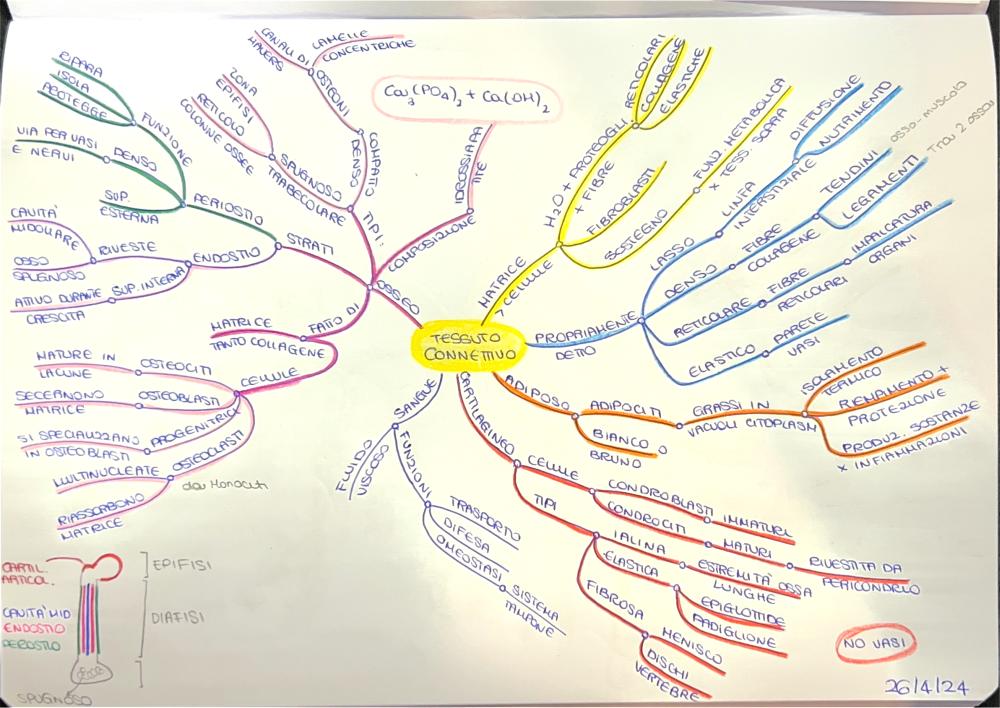 TESSUTO
CONNETTIVO
OSSEO
COMPOSIZIONE
IDROSSIAPA
TITE
Ca₃(PO₄)₂ + Ca(OH)₂
TIPI:
COMPATTO
DENSO
OSTEONI
LAMELLE
CONCENTRICHE
CANALI DI
HAVERS
SPUGNOSO
TRABECOLARE
ZONA
EPIFISI
RETICOLO
COLONNE OSSEE
STRATI
PERIOSTIO
FUNZIONE
RIPARA
ISOLA
PROTEGGE
DENSO
VIA PER VASI
E NERVI
SUP.
ESTERNA
ENDOSTIO
RIVESTE
CAVITA'
MIDOLLARE
OSSO
SPUGNOSO
SUP. INTERNA
ATTIVO DURANTE
CRESCITA
FATTO DI
MATRICE
TANTO COLLAGENE
CELLULE
OSTEOCITI
MATURE IN
LACUNE
OSTEOBLASTI
SECERNONO
MATRICE
PROGENITRICI
SI SPECIALIZZANO
IN OSTEOBLASTI
OSTEOCLASTI
da Monociti
MULTINUCLEATE
RIASSORBONO
MATRICE
MATRICE
7 CELLULE
H₂O + PROTEOGLI.
+ FIBRE
RETICOLARI
COLLAGENE
ELASTICHE
FIBROBLASTI
SOSTEGNO
FUNZ. METABOLICA
x TESS. SOPRA
PROPRIAMENTE
DETTO
LASSO
LINFA
INTERSTIZIALE
DIFFUSIONE
NUTRIMENTO
DENSO
FIBRE
COLLAGENE
TENDINI
OSSO-MUSCOLO
LEGAMENTI
Tra 2 ossa
RETICOLARE
FIBRE
RETICOLARI
IMPALCATURA
ORGANI
ELASTICO
PARETE
VASI
ADIPOSO
ADIPOCITI
GRASSI IN
VACUOLI CITOPLASM
ISOLAMENTO
TERMICO
RIEMPIMENTO +
PROTEZIONE
PRODUZ. SOSTANZE
x INFIAMMAZIONI
BIANCO
BRUNO
CARTILAGINEO
CELLULE
CONDROBLASTI
IMMATURI
CONDROCITI
MATURI
TIPI
IALINA
ESTREMITÀ OSSA
LUNGHE
RIVESTITA DA
PERICONDRIO
ELASTICA
EPIGLOTTIDE
PADIGLIONE
FIBROSA
MENISCO
DISCHI
VERTEBRE
SANGUE
FLUIDO
VISCOSO
FUNZIONI
TRASPORTO
DIFESA
OMEOSTASI
SISTEMA
TAMPONE
CARTIL.
ARTICOL.
EPIFISI
CAVITA' MID
ENDOSTIO
PERIOSTIO
DIAFISI
SPUGNOSO
NO VASI
26/4/24